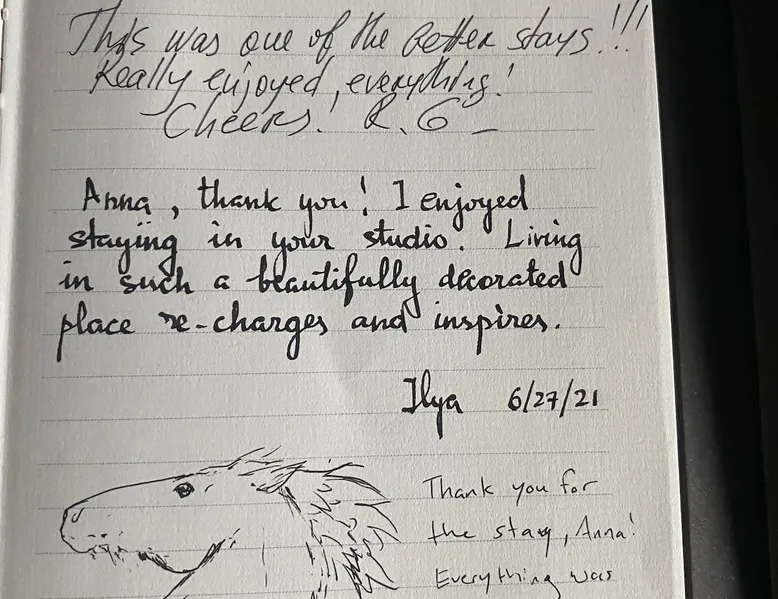 This was one of the better stays!!!
Really enjoyed, everything!
Cheers! R.G
Anna, thank you! I enjoyed
staying in your studio. Living
in such a beautifully decorated
place re-charges and inspires.
Ilya 6/27/21
Thank you for
the stay, Anna!
Everything was